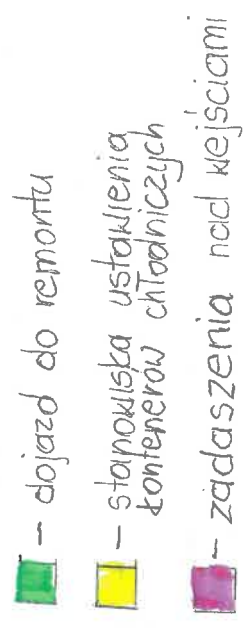 – dojazd do remontu
– stanowiska ustawienia
kontenerów chłodniczych
– zadaszenia nad wejściami